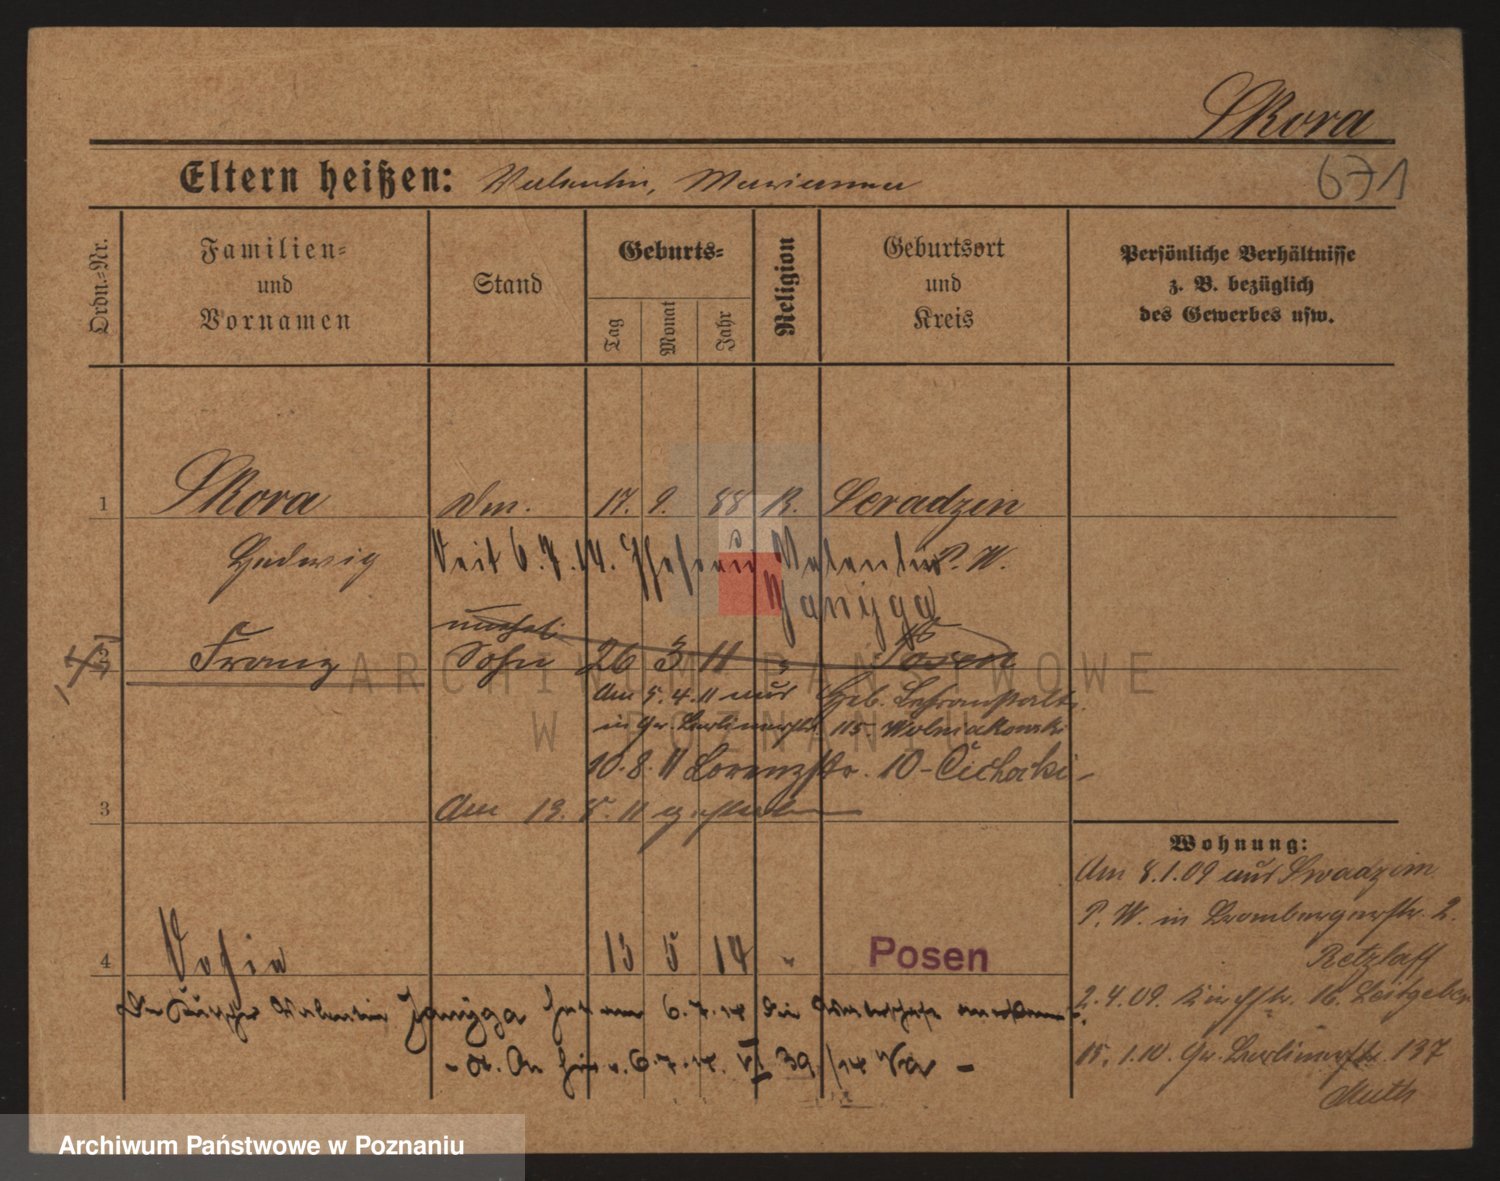 Skora
Eltern heißen: Valentin, Marianna
671
Ordn.=Nr.
Familien=
und
Vornamen
Stand
Geburts=
Tag
Monat
Jahr
Religion
Geburtsort
und
Kreis
Persönliche Verhältnisse
z. B. bezüglich
des Gewerbes usw.
1 Skora 17. 9. 88 K.
Hedwig seit 6.7.14. Ehefrau Valentin P. W.
Janyga
unehel.
Franz Sohn 26 3 11 " Posen
Am 5.4.11 aus Heb. Lehranstalt
in Gr. Berlinerstr. 115. Wolniakowski
10.8.11 Lorenzstr. 10 - Cichocki -
3 Am 13. 8. 11 gestorben
4 13 5 14 " Posen
Valentin Janyga hat am 6.7.14 die Vaterschaft anerkannt
6.7.14. VI 39/14
Wohnung:
Am 8.1.09 aus Swadzim
P. W. in Brombergerstr. 2.
Retzlaff
2.4.09. 16. Leitgeber
15.1.10. Gr. Berlinerstr. 137
Muth
ARCHIWUM PAŃSTWOWE
W POZNANIU
Archiwum Państwowe w Poznaniu